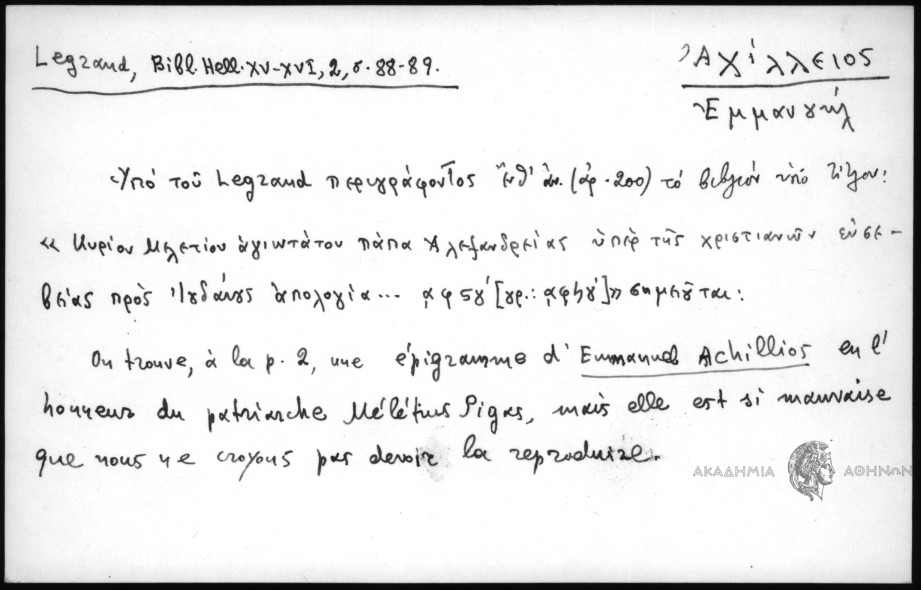 Legrand, Bibl. Hell. XV-XVI, 2, σ. 88-89.
Ἀχίλλειος
Ἐμμανουήλ
Ὑπό τοῦ Legrand περιγράφοντος (ἀρ. 200) τό βιβλίον ὑπό τίτλον:
«Κυρίου Μελετίου ἁγιωτάτου πάπα Ἀλεξανδρείας ὑπέρ τῆς χριστιανῶν εὐσε-
βείας πρός Ἰουδαίους ἀπολογία... ͵αφϛγ΄ [γρ.: ͵αφϟγ΄]» σημειοῦται:
On trouve, à la p. 2, une épigramme d' Emmanuel Achillios en l'
honneur du patriarche Mélétius Pigas, mais elle est si mauvaise
que nous ne croyons pas devoir la reproduire.
ΑΚΑΔΗΜΙΑ ΑΘΗΝΩΝ